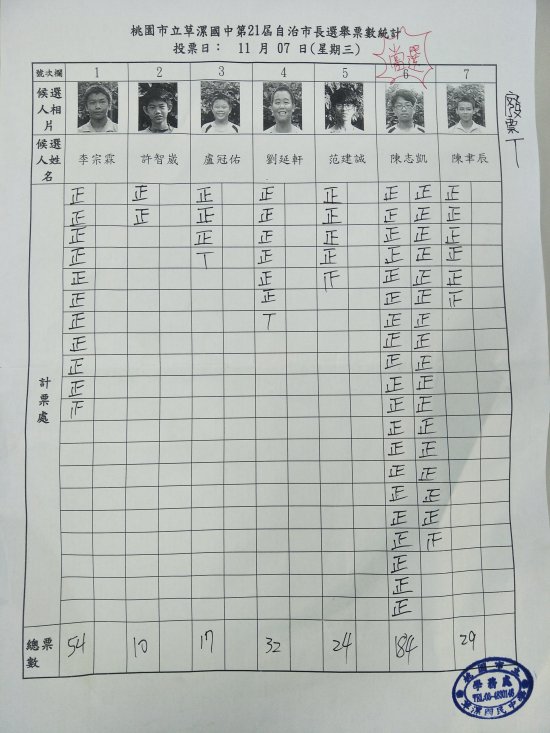 桃園市立草漯國中第21屆自治市長選舉票數統計
投票日： 11 月 07 日(星期三)
當選
號次欄 1 2 3 4 5 6 7
候選人相片
廢票 丅
候選人姓名 李宗霖 許智崴 盧冠佑 劉延軒 范建誠 陳志凱 陳聿辰
正 正 正 正 正 正 正 正
正 正 正 正 正 正 正 正
正 正 正 正 正 正 正
正 丅 正 正 正 正 正
正 正 正 正 正
正 正 正 正
正 丅 正 正
正 正 正
正 正 正
正 正 正
正 正
計票處
正 正
正 正
正 正
正 正
正 正
正
正
正
正
總票數 54 10 17 32 24 184 29
桃園市立
學務處
TEL:03-4830146
草漯國民中學